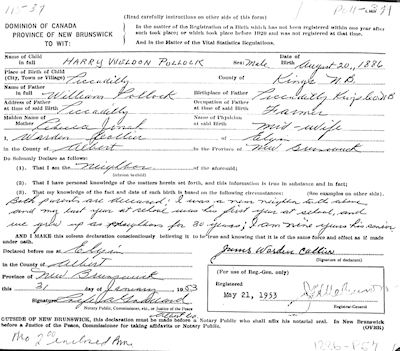 11-37
Poll-371
(Read carefully instructions on other side of this form)
DOMINION OF CANADA
PROVINCE OF NEW BRUNSWICK
TO WIT:
In the matter of the Registration of a Birth which has not been registered within one year after
such took place; or which took place before 1920 and was not registered at that time.
And in the Matter of the Vital Statistics Regulations.
Name of Child in full HARRY WELDON POLLOCK Sex Male Date of Birth August 20, 1886
Place of Birth of Child (City, Town or Village) Piccadilly County of Kings N.B.
Name of Father in full William Pollock Place of Birth of Father Piccadilly Kings Co N.B
Address of Father at time of said Birth Piccadilly Occupation of Father at time of said Birth Farmer
Maiden Name of Mother Name of Physician at said Birth Mid-wife
I, Warden of Elgin
in the County of Albert in the Province of New Brunswick
Do Solemnly Declare as follows:
(1). That I am the Neighbor of the aforesaid;
(2). That I have personal knowledge of the matters herein set forth, and this information is true in substance and in fact;
(3). That my knowledge of the fact and date of such birth is based on the following circumstances: (See examples on other side).
Both parents are deceased; I was a near neighbor both alone
and my last year at school was his first year at school, and
we grew up as neighbors for 30 years; I am nine years his senior
AND I MAKE this solemn declaration conscientiously believing it to be true and knowing that it is of the same force and effect as if made
under oath.
Declared before me at Elgin
in the County of Albert
Province of New Brunswick
this 31 day of January 1953
Signature
Notary Public, Commissioner, etc., or Justice of the Peace
Albert Co
James Warden
(Signature of declarant)
(For use of Reg.-Gen. only)
Registered
May 21, 1953
Registrar-General
OUTSIDE OF NEW BRUNSWICK, this declaration must be made before a Notary Public who shall affix his notarial seal. In New Brunswick
before a Justice of the Peace, Commissioner for taking affidavits or Notary Public. (OVER)
enclosed